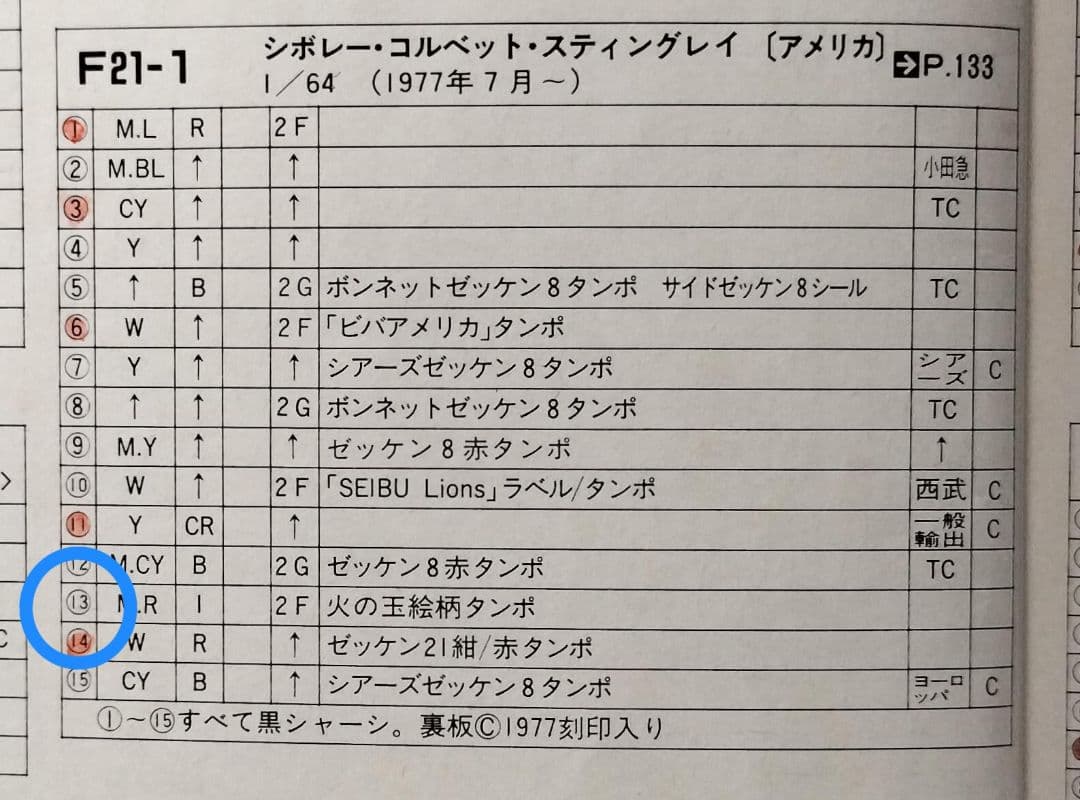 F21-1 シボレー・コルベット・スティングレイ〔アメリカ〕 ➔P.133
1／64 （1977年7月～）
① M.L R 2F
② M.BL ↑ ↑ 小田急
③ CY ↑ ↑ TC
④ Y ↑ ↑
⑤ ↑ B 2G ボンネットゼッケン8タンポ サイドゼッケン8シール TC
⑥ W ↑ 2F 「ビバアメリカ」タンポ
⑦ Y ↑ ↑ シアーズゼッケン8タンポ シアーズ C
⑧ ↑ ↑ 2G ボンネットゼッケン8タンポ TC
⑨ M.Y ↑ ↑ ゼッケン8赤タンポ ↑
⑩ W ↑ 2F 「SEIBU Lions」ラベル/タンポ 西武 C
⑪ Y CR ↑ 一般輸出 C
⑫ M.CY B 2G ゼッケン8赤タンポ TC
⑬ M.R I 2F 火の玉絵柄タンポ
⑭ W R ↑ ゼッケン21紺/赤タンポ
⑮ CY B ↑ シアーズゼッケン8タンポ ヨーロッパ C
①～⑮すべて黒シャーシ。裏板©1977刻印入り